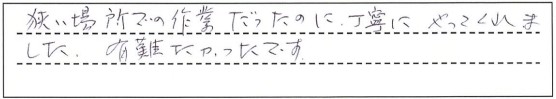 狭い場所での作業だったのに、丁寧にやってくれま
した。有難たかったです